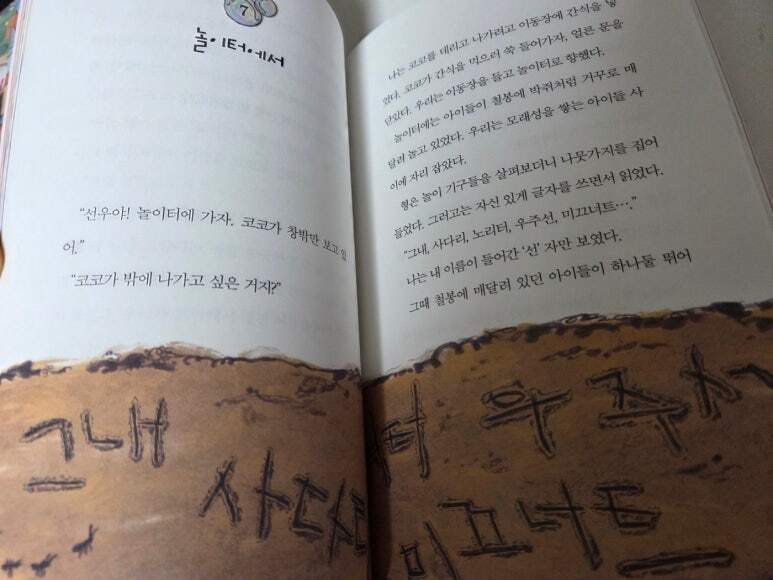 7
놀이터에서
"선우야! 놀이터에 가자. 코코가 창밖만 보고 있
어."
"코코가 밖에 나가고 싶은 거지?"
그내
사다리
나는 코코를 데리고 나가려고 이동장에 간식을 넣
었다. 코코가 간식을 먹으러 쏙 들어가자, 얼른 문을
닫았다. 우리는 이동장을 들고 놀이터로 향했다.
놀이터에는 아이들이 철봉에 박쥐처럼 거꾸로 매
달려 놀고 있었다. 우리는 모래성을 쌓는 아이들 사
이에 자리 잡았다.
형은 놀이 기구들을 살펴보더니 나뭇가지를 집어
들었다. 그러고는 자신 있게 글자를 쓰면서 읽었다.
"그내, 사다리, 노리터, 우주선, 미끄너트…."
나는 내 이름이 들어간 '선' 자만 보였다.
그때 철봉에 매달려 있던 아이들이 하나둘 뛰어
터 우주
미끄너트